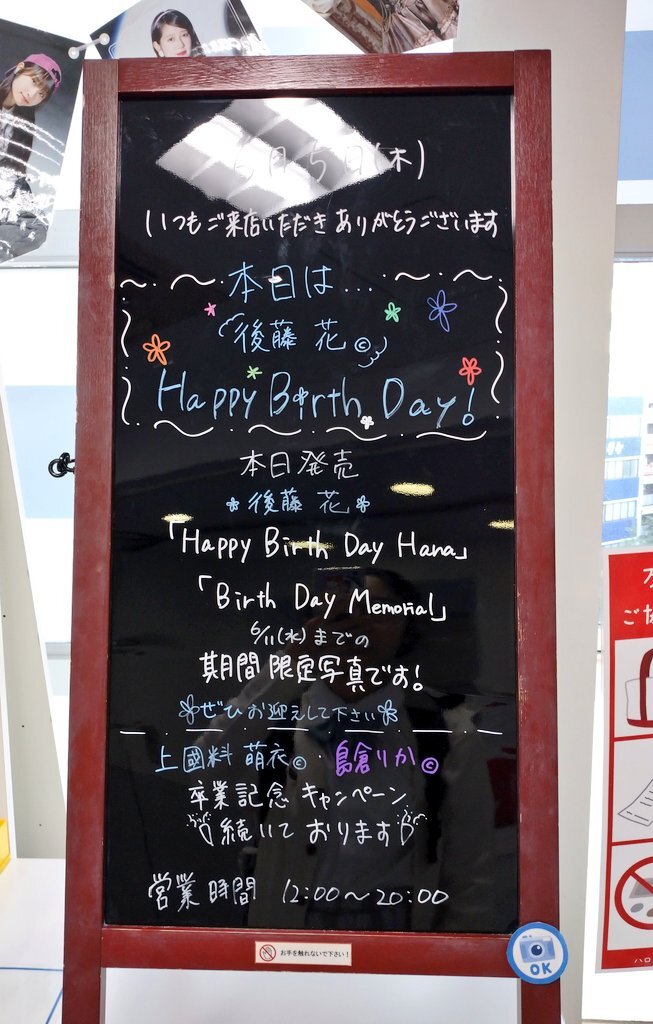 6月5日(木)
いつもご来店いただきありがとうございます
本日は...
後藤 花©
Happy Birth Day!
本日発売
後藤 花
「Happy Birth Day Hana」
「Birth Day Memorial」
6/11(水)までの
期間限定写真です!
ぜひお迎えして下さい
上國料 萌衣©・島倉りか©
卒業記念 キャンペーン
続いております
営業時間 12:00〜20:00
お手を触れないで下さい!
OK